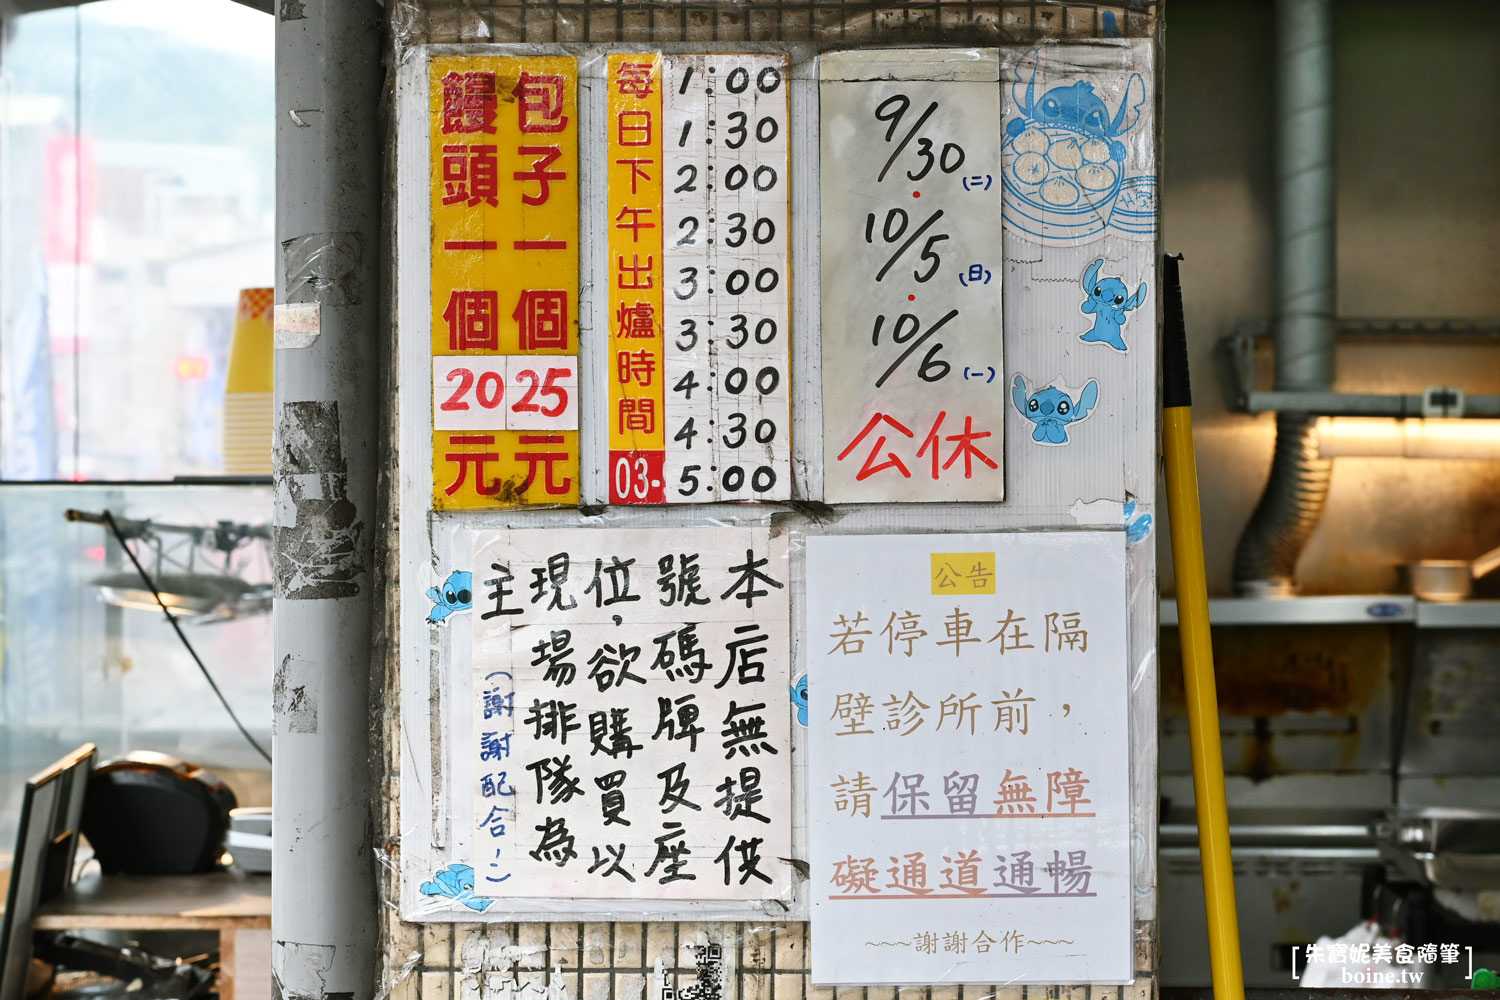 包子一個25元
饅頭一個20元
每日下午出爐時間
03-
1:00
1:30
2:00
2:30
3:00
3:30
4:00
4:30
5:00
9/30(二)
10/5(日)
10/6(一)
公休
本店無提供
號碼牌及座
位,欲購買以
現場排隊為
主
(謝謝配合!)
公告
若停車在隔
壁診所前，
請保留無障
礙通道通暢
~~~謝謝合作~~~
[朱寶妮美食隨筆]
boine.tw